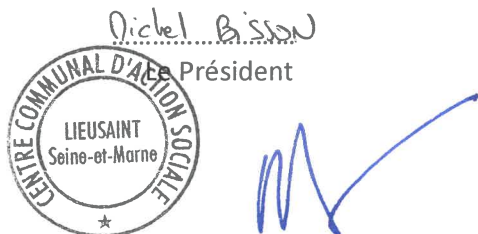 Michel Bisson
Le Président
CENTRE COMMUNAL D'ACTION SOCIALE
LIEUSAINT
Seine-et-Marne